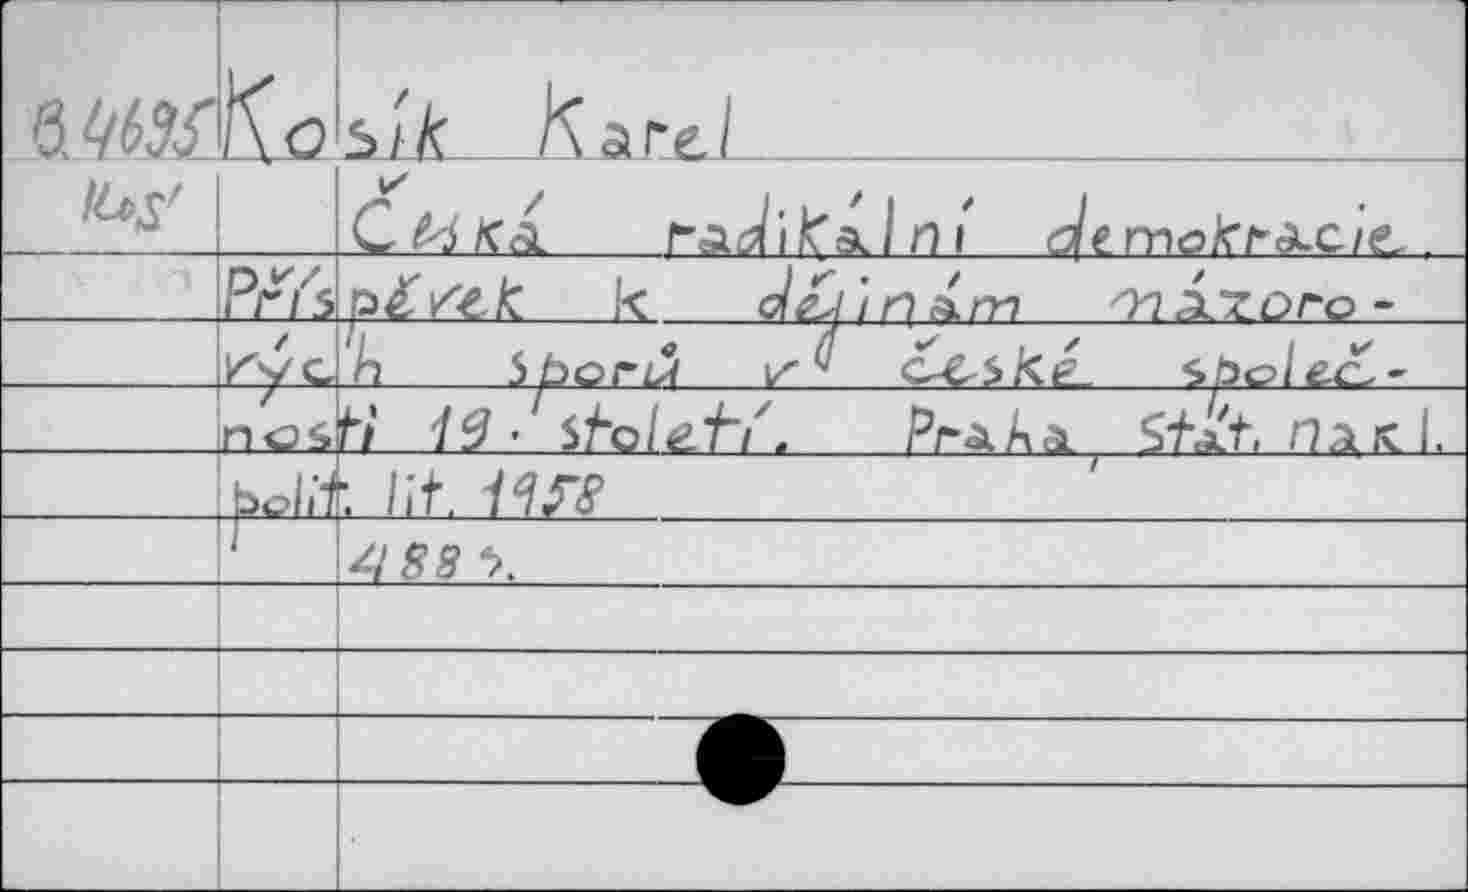 B.4695 Kosík Karel
Kos' Česká radikální demokracie.
Příspěvek k dějinám názoro-
vých sporů v české společ-
nosti 19. století. Praha, Stát. nakl.
polit. lit. 1958
488 s.